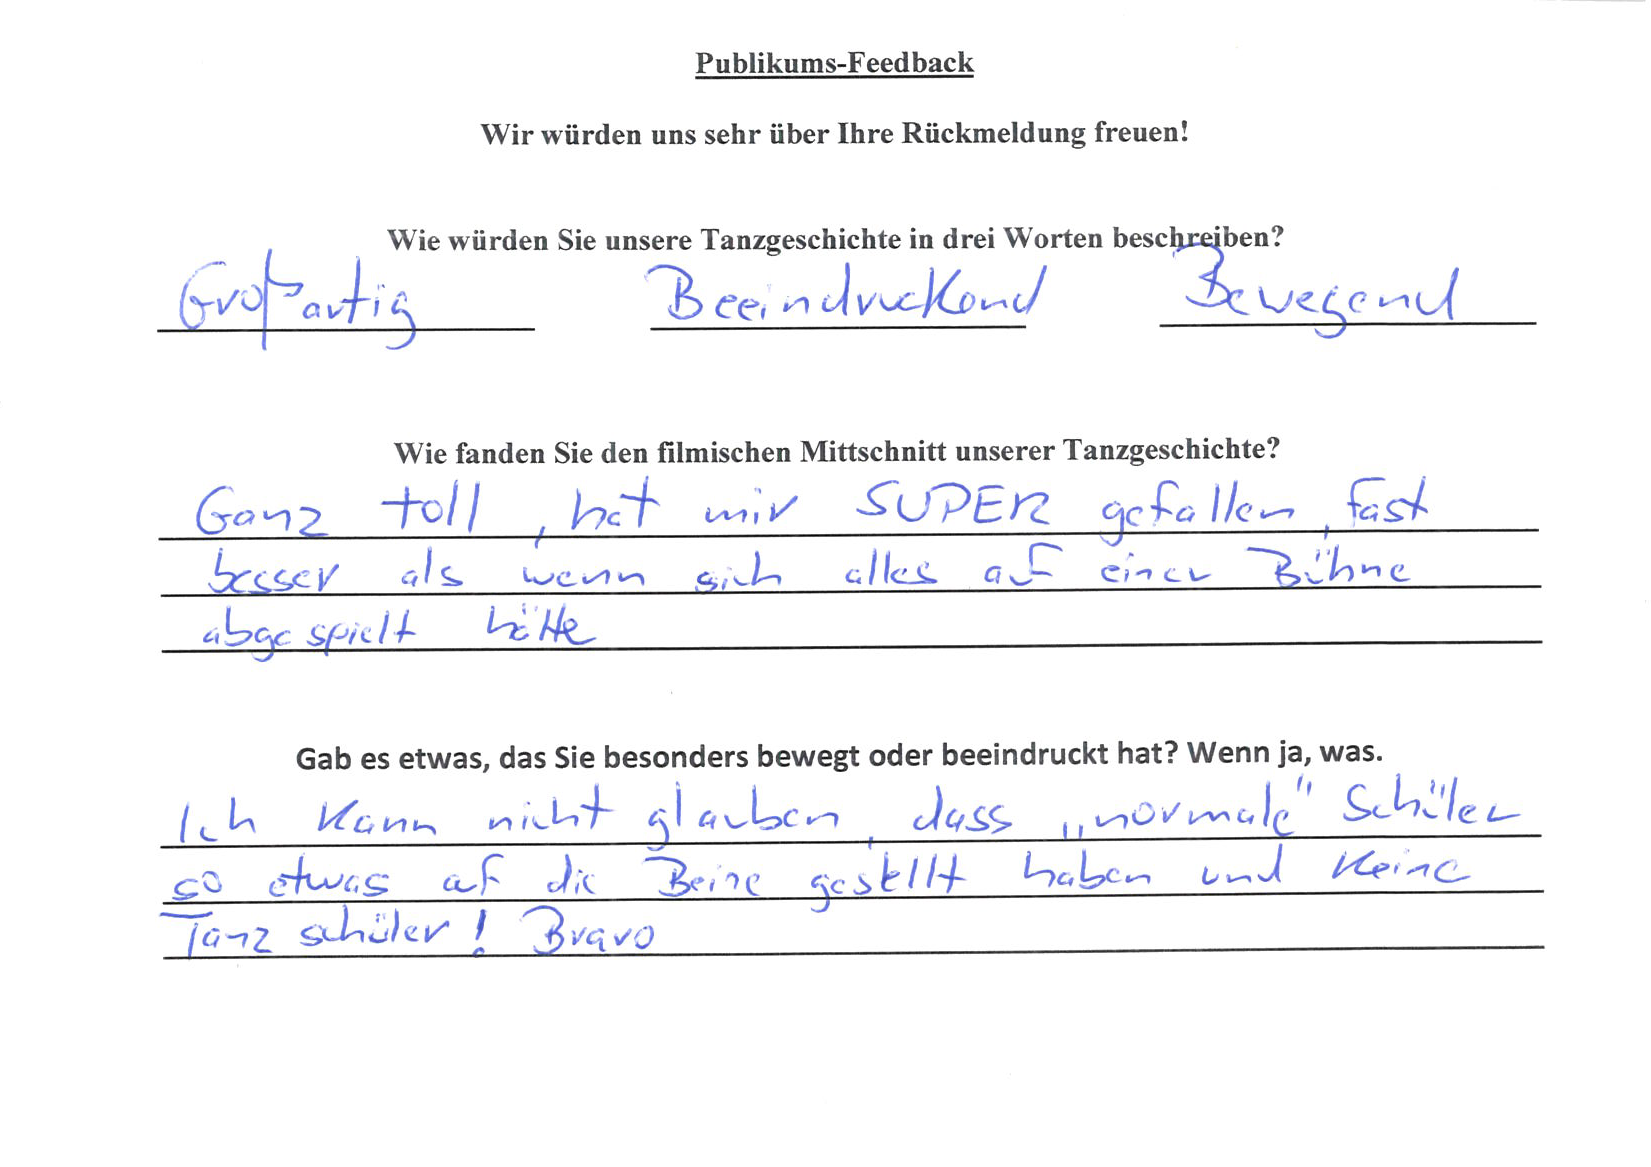 Publikums-Feedback
Wir würden uns sehr über Ihre Rückmeldung freuen!
Wie würden Sie unsere Tanzgeschichte in drei Worten beschreiben?
Großartig Beeindruckend Bewegend
Wie fanden Sie den filmischen Mittschnitt unserer Tanzgeschichte?
Ganz toll, hat mir SUPER gefallen, fast
besser als wenn sich alles auf einer Bühne
abgespielt hätte
Gab es etwas, das Sie besonders bewegt oder beeindruckt hat? Wenn ja, was.
Ich kann nicht glauben, dass „normale" Schüler
so etwas auf die Beine gestellt haben und keine
Tanzschüler! Bravo